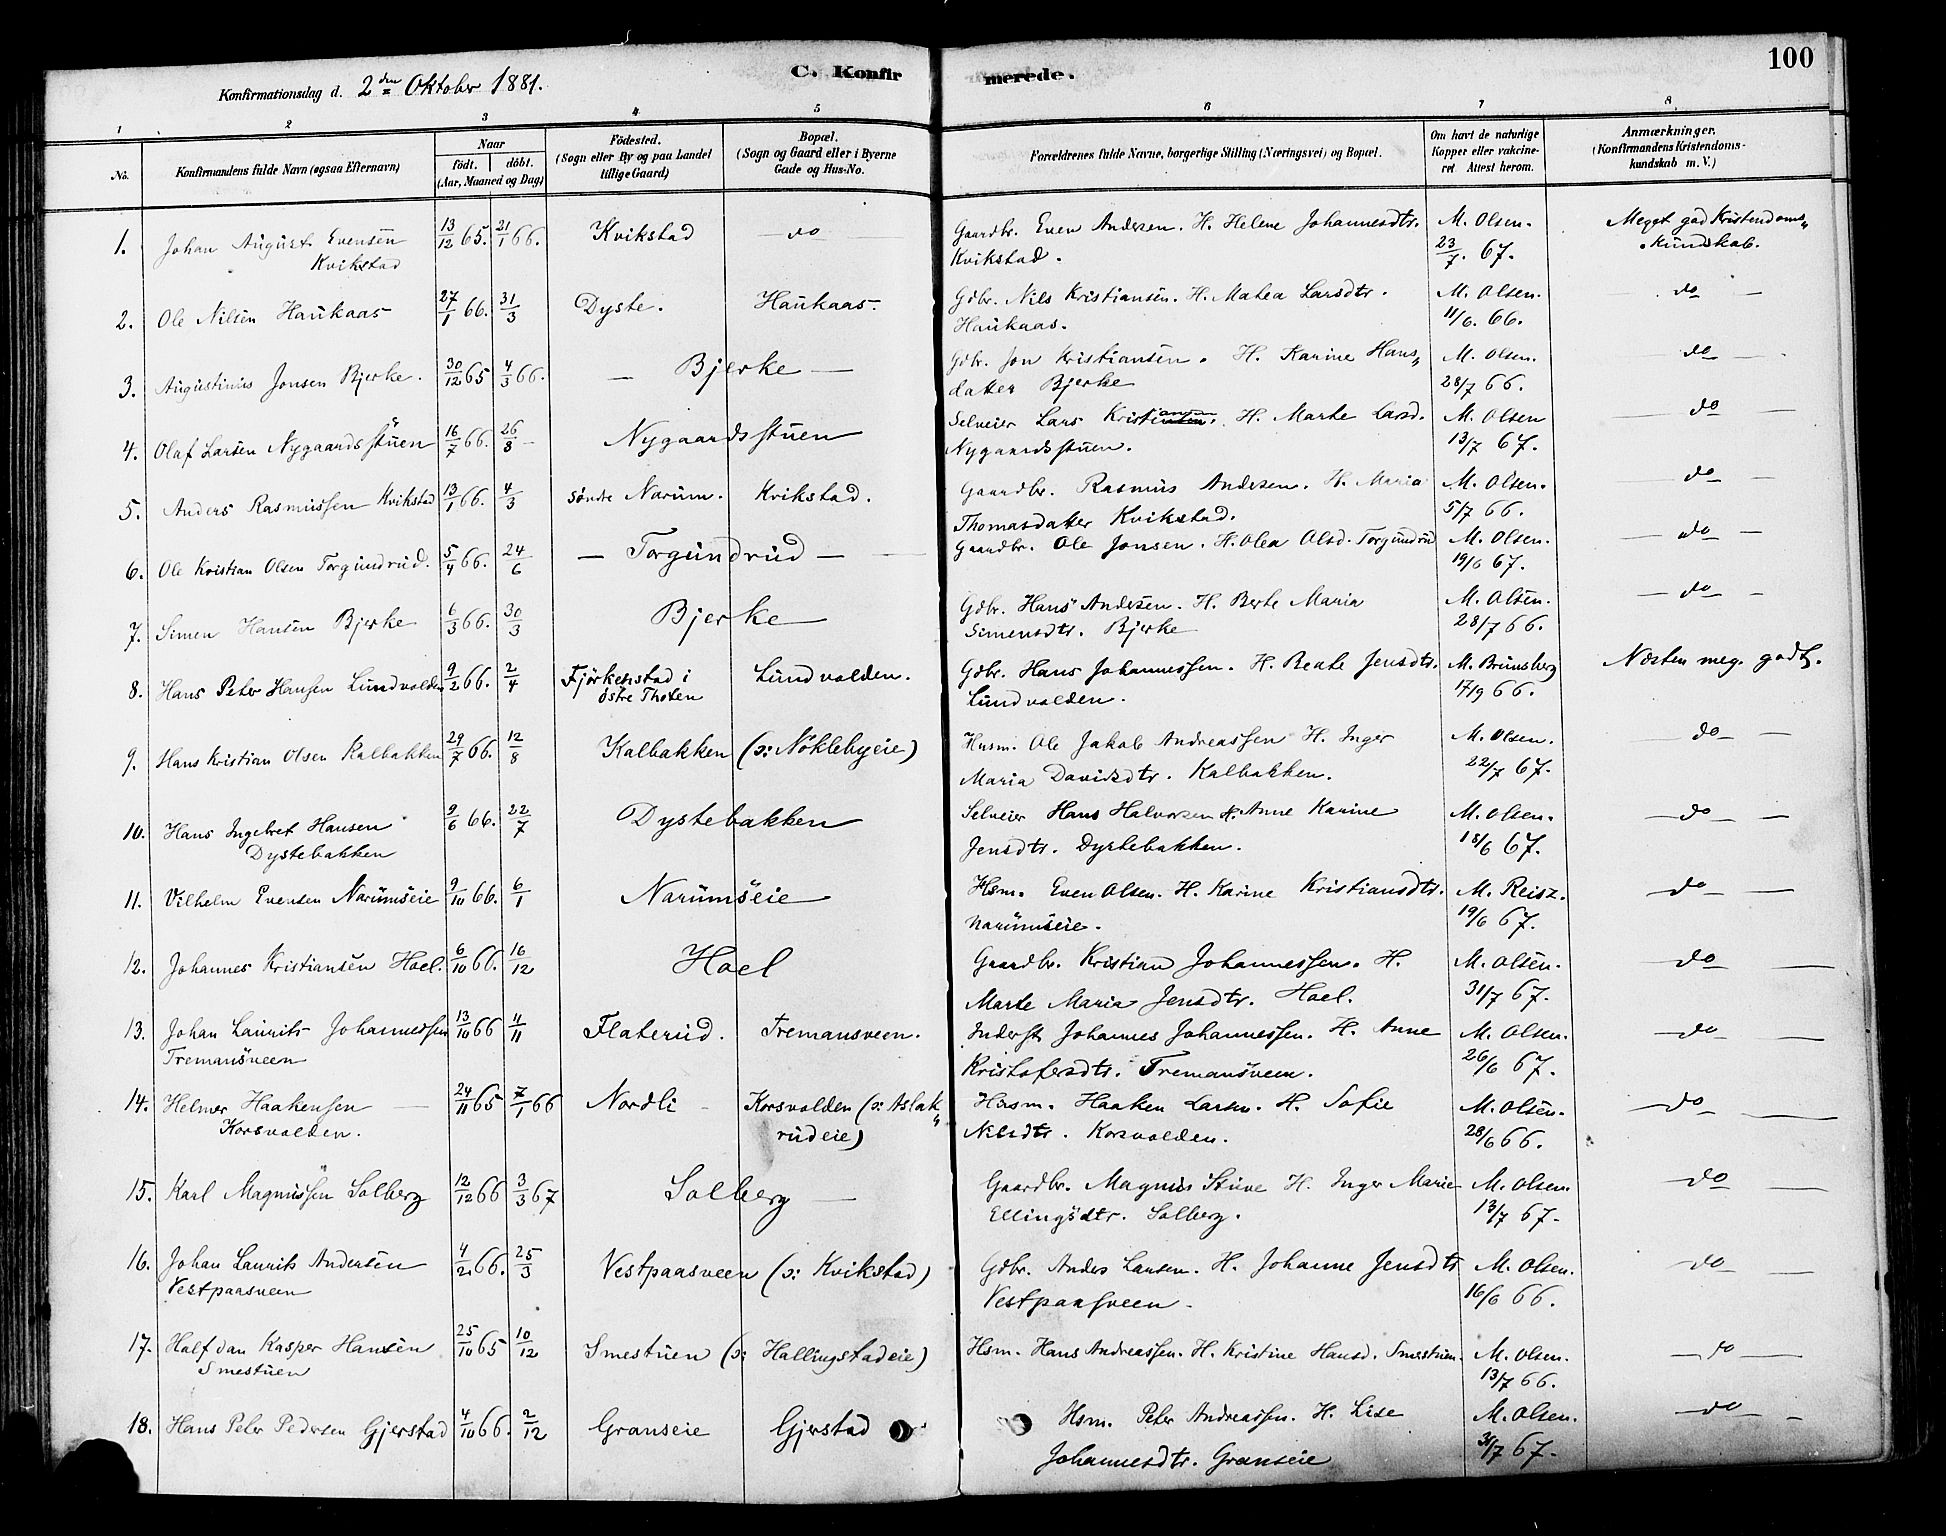 100
C. Konfirmerede.
Konfirmationsdag d. 2den Oktober 1881.
1 2 3 4 5 6 7 8
No.
Konfirmandens fulde Navn (ogsaa Efternavn)
Naar
födt. döbt.
(Aar, Maaned og Dag)
Födested.
(Sogn eller By og paa Landet
tillige Gaard)
Bopæl.
(Sogn og Gaard eller i Byerne
Gade og Hus-No.
Forældrenes fulde Navne, borgerlige Stilling (Næringsvei) og Bopæl.
Om havt de naturlige
Kopper eller vakcineret.
Attest herom.
Anmærkninger.
(Konfirmandens Kristendomskundskab
m. V.)
1. Johan August Evensen 13/12 65. 21/1 66. Kvikstad do Gaardbr. Even Andersen. H. Helene Johannesdtr. M. Olsen. Meget god Kristendoms„
Kvikstad Kvikstad. 23/7. 67. kundskab.
2. Ole Nilsen Haukaas 27/1 66. 31/3 Dyste. Haukaas. Gdbr. Nils Kristiansen. H. Mathea Larsdtr. M. Olsen. do —
Haukaas. 11/6. 66.
3. Augustinus Jonsen Bjerke. 30/12 65 4/3 66. — Bjerke — Gdbr. Jon Kristiansen. H. Karine Hans„ M. Olsen. do —
datter Bjerke 28/7 66.
4. Olaf Larsen Nygaardsstuen 16/7 66. 26/8 — Nygaardsstuen Selveier Lars Kristiansen. H. Marte Larsd. M. Olsen — do —
Nygaardsstuen. 13/7 67.
5. Anders Rasmussen Kvikstad 13/1 66. 4/3 Söndre Narum. Kvikstad. Gaardbr. Rasmus Andersen. H. Maria M. Olsen. — do —
Thomasdatter Kvikstad. 5/7 66.
6. Ole Kristian Olsen Torgundrud. 5/4 66. 24/6 — Torgundrud — Gaardbr. Ole Jonsen. H. Olea Olsd. Torgundrud M. Olsen. — do —
19/6 67.
7. Simen Hansen Bjerke 6/3 66. 30/3 Bjerke Gdbr. Hans Andersen. H. Berte Maria M. Olsen. — do —
Simensdtr. Bjerke 28/7 66.
8. Hans Peter Hansen Lundvolden 9/2 66. 2/4 Fjörkenstad i Lundvolden. Gdbr. Hans Johannessen. H. Beate Jensdtr. M. Brunsberg Næsten meg. godt.
östre Thoten Lundvolden. 17/9 66.
9. Hans Kristian Olsen Kalbakken 29/7 66. 12/8 Kalbakken (ɔ: Nöklebyeie) Husm. Ole Jakob Andreassen H. Inger M. Olsen. — do —
Maria Davidsdtr. Kalbakken. 22/7 67.
10. Hans Ingebret Hansen 9/6 66. 22/7 Dystebakken Selveier Hans Halvorsen H. Anne Karine M. Olsen. — do —
Dystebakken Jensdtr. Dystebakken. 18/6 67.
11. Vilhelm Evensen Narumseie 9/10 66. 6/1 Narumseie Hsm. Even Olsen. H. Karine Kristiansdtr. M. Reisz. do —
Narumseie. 19/6 67.
12. Johannes Kristiansen Hoel. 6/10 66. 16/12 Hoel Gaardbr. Kristian Johannessen. H. M. Olsen. do —
Marte Maria Jensdtr. Hoel. 31/7 67.
13. Johan Laurits Johannessen 13/10 66 11/11 Flaterud. Tremansveen. Inderst Johannes Johannessen. H. Anne M. Olsen. do —
Tremansveen Kristofersdtr. Tremansveen. 26/6 67.
14. Helmer Haakensen 24/11 65 7/1 66 Nordli Korsvolden (ɔ: Aslak„ Husm. Haaken Larsen. H. Sofie M. Olsen. do —
Korsvolden. rudeie) Nilsdtr. Korsvolden. 28/6 66.
15. Karl Magnussen Solberg 12/12 66 3/3 67 Solberg — Gaardbr. Magnus Stuve H. Inger Marie M. Olsen. do —
Ellingsdtr. Solberg. 13/7 67.
16. Johan Laurits Andersen 4/2 66. 25/3 Vestpaasveen (ɔ: Kvikstad) Gdbr. Anders Larsen. H. Johanne Jensdtr M. Olsen. do —
Vestpaasveen Vestpaasveen. 16/6 66.
17. Halfdan Kasper Hansen 25/10 65 10/12 Smestuen (ɔ: Hallingstadeie) Hsm. Hans Andreassen. H. Kristine Hansd. Smestuen. M. Olsen. — do —
Smestuen 13/7 66.
18. Hans Peter Pedersen Gjerstad 4/10 66. 2/12 Granseie Gjerstad Hsm. Peter Andreassen. H. Lise M. Olsen. do —
Johannesdtr. Granseie 31/7 67.